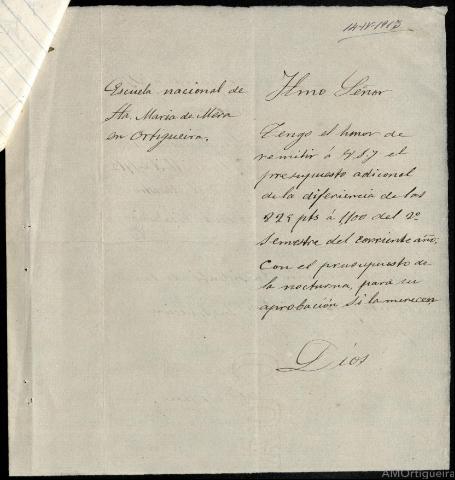 14-IV-1913
Escuela nacional de
Sta. Maria de Mera
en Ortigueira.
Ilmo Señor
Tengo el honor de
remitir á V.S.Y el
presupuesto adicional
de la diferiencia de las
825 pts á 1100 del 2º
semestre del corriente año,
con el presupuesto de
la nocturna, para su
aprobación si la merecen
Dios
AMOrtigueira